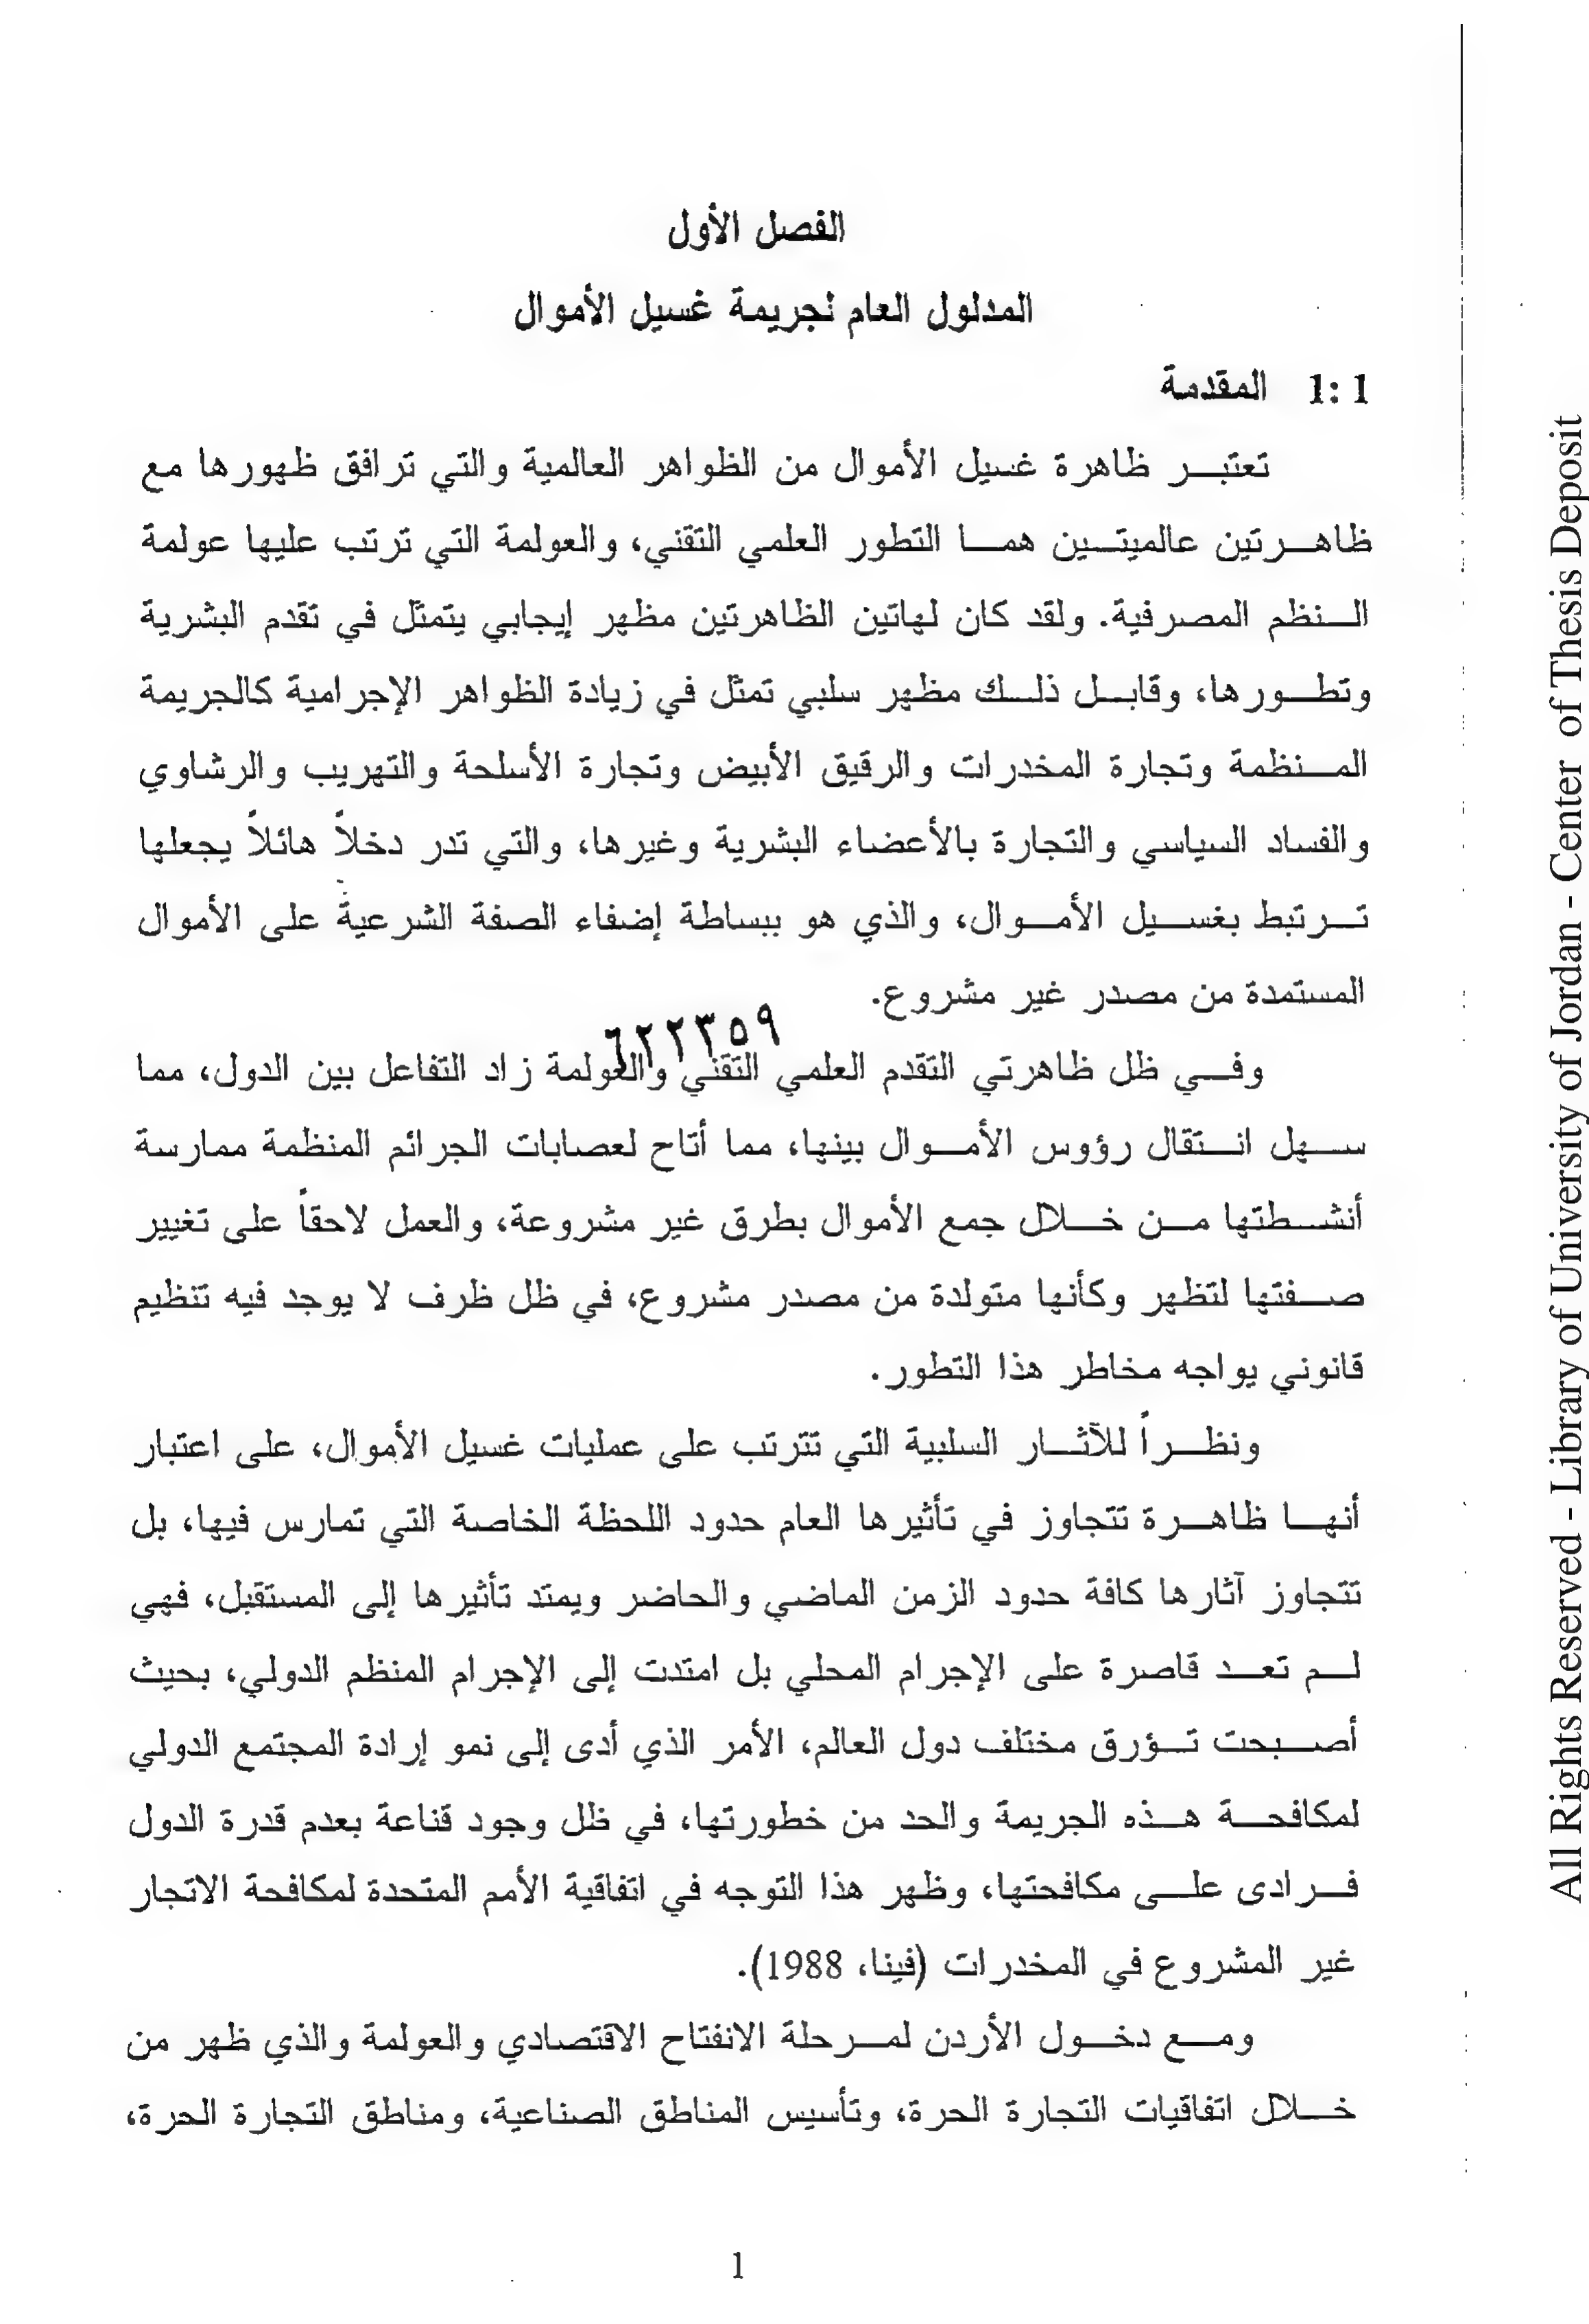 الفصل الأول
المدلول العام لجريمة غسيل الأموال
1:1 المقدمة
تعتبر ظاهرة غسيل الأموال من الظواهر العالمية والتي ترافق ظهورها مع
ظاهرتين عالميتين هما التطور العلمي التقني، والعولمة التي ترتب عليها عولمة
النظم المصرفية. ولقد كان لهاتين الظاهرتين مظهر إيجابي يتمثل في تقدم البشرية
وتطورها، وقابل ذلك مظهر سلبي تمثل في زيادة الظواهر الإجرامية كالجريمة
المنظمة وتجارة المخدرات والرقيق الأبيض وتجارة الأسلحة والتهريب والرشاوي
والفساد السياسي والتجارة بالأعضاء البشرية وغيرها، والتي تدر دخلاً هائلاً يجعلها
ترتبط بغسيل الأموال، والذي هو ببساطة إضفاء الصفة الشرعية على الأموال
المستمدة من مصدر غير مشروع.
٦٢٢٣٥٩
وفي ظل ظاهرتي التقدم العلمي التقني والعولمة زاد التفاعل بين الدول، مما
سهل انتقال رؤوس الأموال بينها، مما أتاح لعصابات الجرائم المنظمة ممارسة
أنشطتها من خلال جمع الأموال بطرق غير مشروعة، والعمل لاحقاً على تغيير
صفتها لتظهر وكأنها متولدة من مصدر مشروع، في ظل ظرف لا يوجد فيه تنظيم
قانوني يواجه مخاطر هذا التطور.
ونظراً للآثار السلبية التي تترتب على عمليات غسيل الأموال، على اعتبار
أنها ظاهرة تتجاوز في تأثيرها العام حدود اللحظة الخاصة التي تمارس فيها، بل
تتجاوز آثارها كافة حدود الزمن الماضي والحاضر ويمتد تأثيرها إلى المستقبل، فهي
لم تعد قاصرة على الإجرام المحلي بل امتدت إلى الإجرام المنظم الدولي، بحيث
أصبحت تؤرق مختلف دول العالم، الأمر الذي أدى إلى نمو إرادة المجتمع الدولي
لمكافحة هذه الجريمة والحد من خطورتها، في ظل وجود قناعة بعدم قدرة الدول
فرادى على مكافحتها، وظهر هذا التوجه في اتفاقية الأمم المتحدة لمكافحة الاتجار
غير المشروع في المخدرات (فينا، 1988).
ومع دخول الأردن لمرحلة الانفتاح الاقتصادي والعولمة والذي ظهر من
خلال اتفاقيات التجارة الحرة، وتأسيس المناطق الصناعية، ومناطق التجارة الحرة،
1
All Rights Reserved - Library of University of Jordan - Center of Thesis Deposit